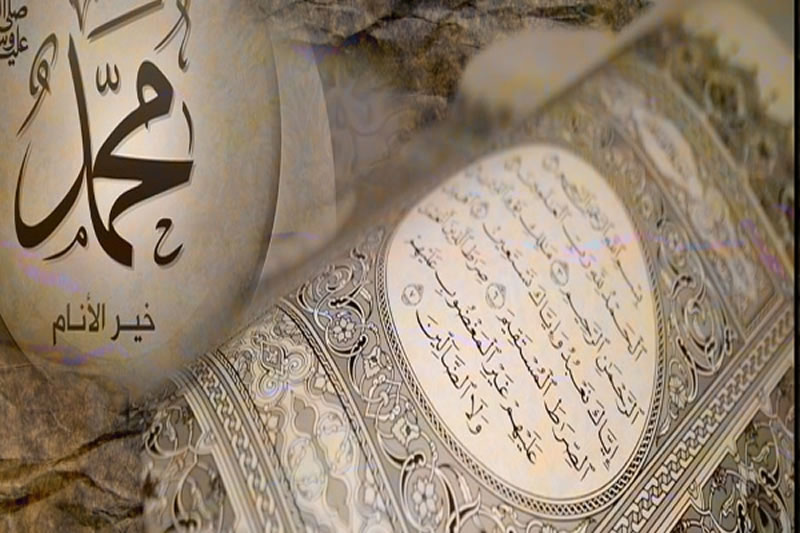 محمّد
خير الأنام
بِسْمِ اللَّهِ الرَّحْمَٰنِ الرَّحِيمِ
الْحَمْدُ لِلَّهِ رَبِّ الْعَالَمِينَ
الرَّحْمَٰنِ الرَّحِيمِ مَالِكِ يَوْمِ الدِّينِ
إِيَّاكَ نَعْبُدُ وَإِيَّاكَ نَسْتَعِينُ اهْدِنَا
الصِّرَاطَ الْمُسْتَقِيمَ صِرَاطَ الَّذِينَ أَنْعَمْتَ
عَلَيْهِمْ غَيْرِ الْمَغْضُوبِ عَلَيْهِمْ
وَلَا الضَّالِّينَ